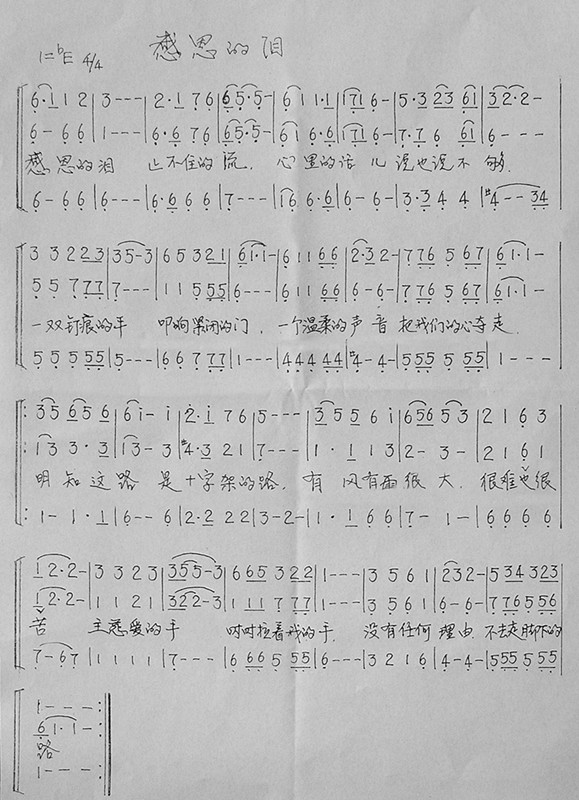 1=♭E 4/4 感恩的泪
6·1 1 2 | 3 - - - | 2·1 7 6 | 6 5·5 - | 6 1 1 1·1 | 1 7 1 6 - | 5·3 2 3 6 1 | 3 2·2 - |
6 - 6 6 | 1 - - - | 6·6 7 6 | 6 5·5 - | 6 1 6·6 | 1 7 1 6 - | 7·7 6 6 1 | 6 - - - |
感恩的泪 止不住的流, 心里的话儿说也说不够.
6 - 6 6 | 6 - - - | 6·6 6 6 | 7 - - - | 1 6 6·6 | 6 - 6 - | 3·3 4 4 | #4 - - 3 4 |
3 3 2 2 2 3 | 3 5 - 3 | 6 5 3 2 1 | 6 1·1 - | 6 1 1 6 6 | 2·3 2 - | 7 7 6 5 6 7 | 6 1·1 - |
5 5 7 7 7 | 7 - - - | 1 1 5 5 5 | 6 - - - | 6 1 1 6 6 | 6 - 6 - | 7 7 6 5 6 7 | 6 1·1 - |
一双钉痕的手 叩响紧闭的门, 一个温柔的声音把我们的心夺走.
5 5 5 5 5 | 5 - - - | 6 6 7 7 7 | 1 - - - | 4 4 4 4 4 | #4 - 4 - | 5 5 5 5 5 5 | 1 - - - |
: 3 5 6 5 6 | 6 i - i | 2·i 7 6 | 5 - - - | 3 5 5 6 i | 6 5 6 5 3 | 2 1 6 3
: 1 3 3·3 | 1 3 - 3 | #4·3 2 1 | 7 - - - | 1·1 1 3 | 2 - 3 - | 2 1 6 1
明知这路是十字架的路, 有风有雨很大, 很难也很
: 1 - 1·1 | 6 - - 6 | 2·2 2 2 | 3 - 2 - | 1·1 6 6 | 7 - 1 - | 6 6 6 6
1 2·2 - | 3 3 2 3 | 3 5 5 - 3 | 6 6 5 3 2 2 | 1 - - - | 3 5 6 1 | 2 3 2 - | 5 3 4 3 2 3
1 2·2 - | 1 1 2 1 | 3 2 2 - 3 | 1 1 7 7 7 | 1 - - - | 3 5 6 1 | 6 - 6 - | 7 7 6 5 5 6
苦 主慈爱的手 时时拉着我的手. 没有任何理由 不去走脚下的
7 - 6 7 | 1 1 1 1 | 7 - - - | 6 6 6 5 5 5 | 6 - - - | 3 2 1 6 | 4 - 4 - | 5 5 5 5 5 5
1 - - - :
6 1·1 - :
路
1 - - - :